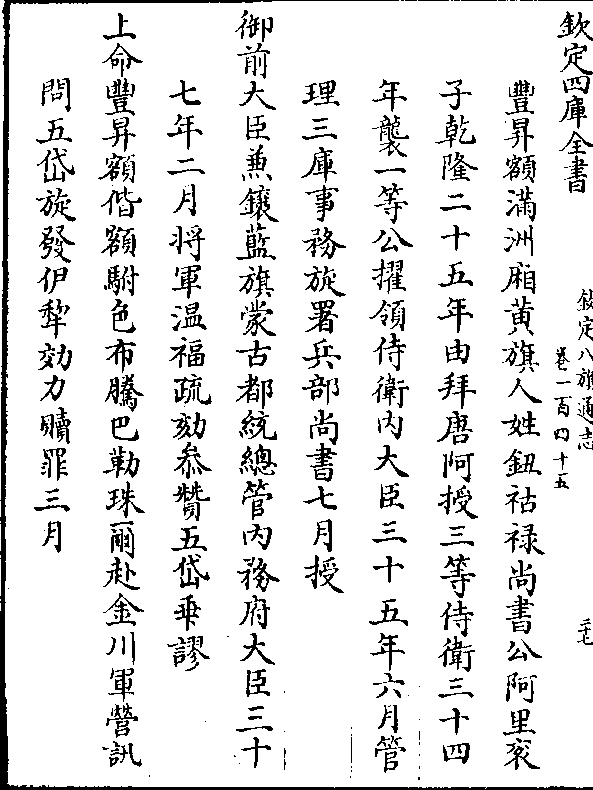 欽定四庫全書
欽定八旗通志
卷一百四十五
三七
豐昇額滿洲廂黃旗人姓鈕祜禄尚書公阿里衮
子乾隆二十五年由拜唐阿授三等侍衛三十四
年襲一等公擢領侍衛内大臣三十五年六月管
理三庫事務旋署兵部尚書七月授
御前大臣兼鑲藍旗蒙古都統總管内務府大臣三十
七年二月將軍温福疏劾叅贊五岱乖謬
上命豐昇額偕額駙色布騰巴勒珠爾赴金川軍營訊
問五岱旋發伊犂効力贖罪三月